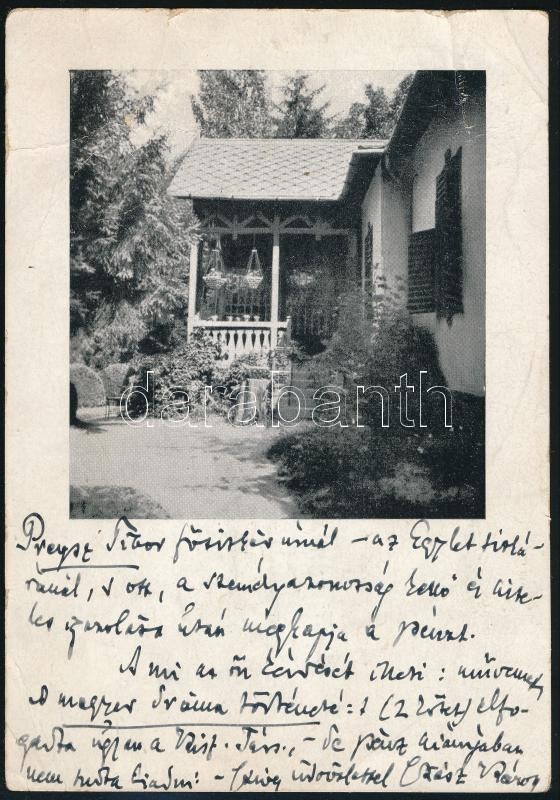 darabanth
Preysz Tibor főtitkár úrnál – az Egylet titká-
ránál, s ott, a személyazonosság kellő és hite-
les igazolása után megkapja a pénzt.
A mi az ön kérdését illeti: művemet,
a magyar dráma történeté:t (2 kötet) elfo-
gadta ugyan a Kisf. Társ., – de pénz hiányában
nem tudta kiadni: – Szíves üdvözlettel Szász Károly